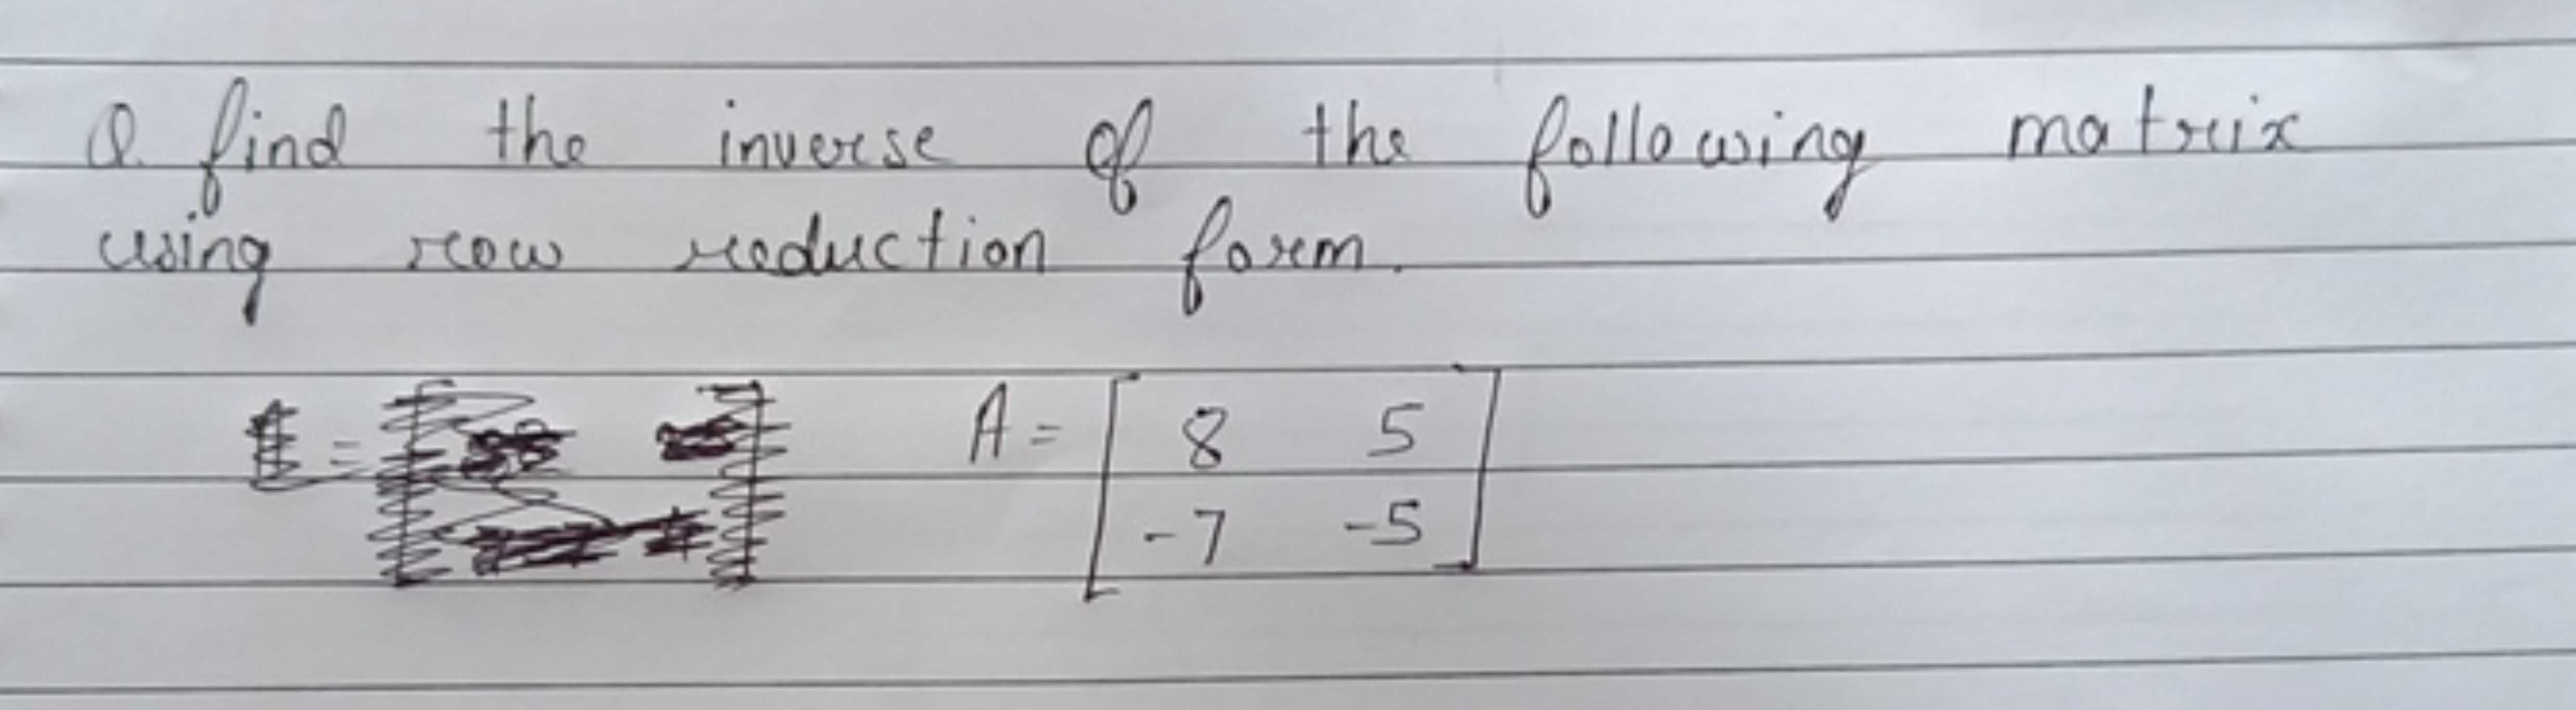 Q. find the inverse of the following matrix
using row reduction form.
A = [ 8 5
-7 -5 ]